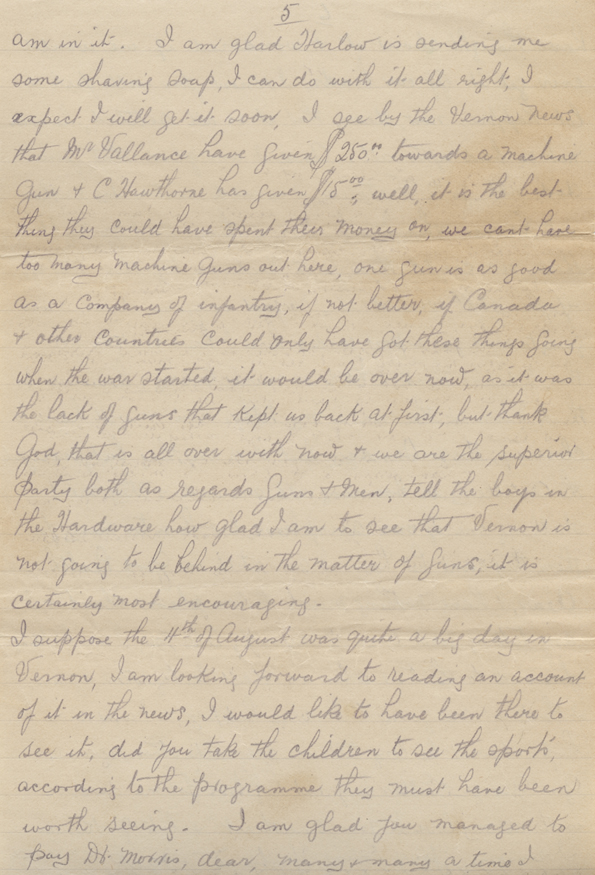 5
am in it. I am glad Harlow is sending me
some shaving soap, I can do with it all right, I
expect I will get it soon, I see by the Vernon news
that Mr Vallance have given $250.00 towards a machine
Gun & C Hawthorne has given $15.00, well, it is the best
thing they could have spent their money on, we cant have
too many Machine Guns out here, one gun is as good
as a Company of infantry, if not better, if Canada
& other Countries could only have got these things going
when the war started, it would be over now, as it was
the lack of guns that kept us back at first, but thank
God, that is all over with now & we are the superior
party both as regards Guns & Men, tell the boys in
the Hardware how glad I am to see that Vernon is
not going to be behind in the matter of Guns, it is
certainly most encouraging.
I suppose the 4th of August was quite a big day in
Vernon, I am looking forward to reading an account
of it in the news, I would like to have been there to
see it, did you take the children to see the sports,
according to the programme they must have been
worth seeing. I am glad you managed to
pay Dr. Morris, dear, many & many a time I